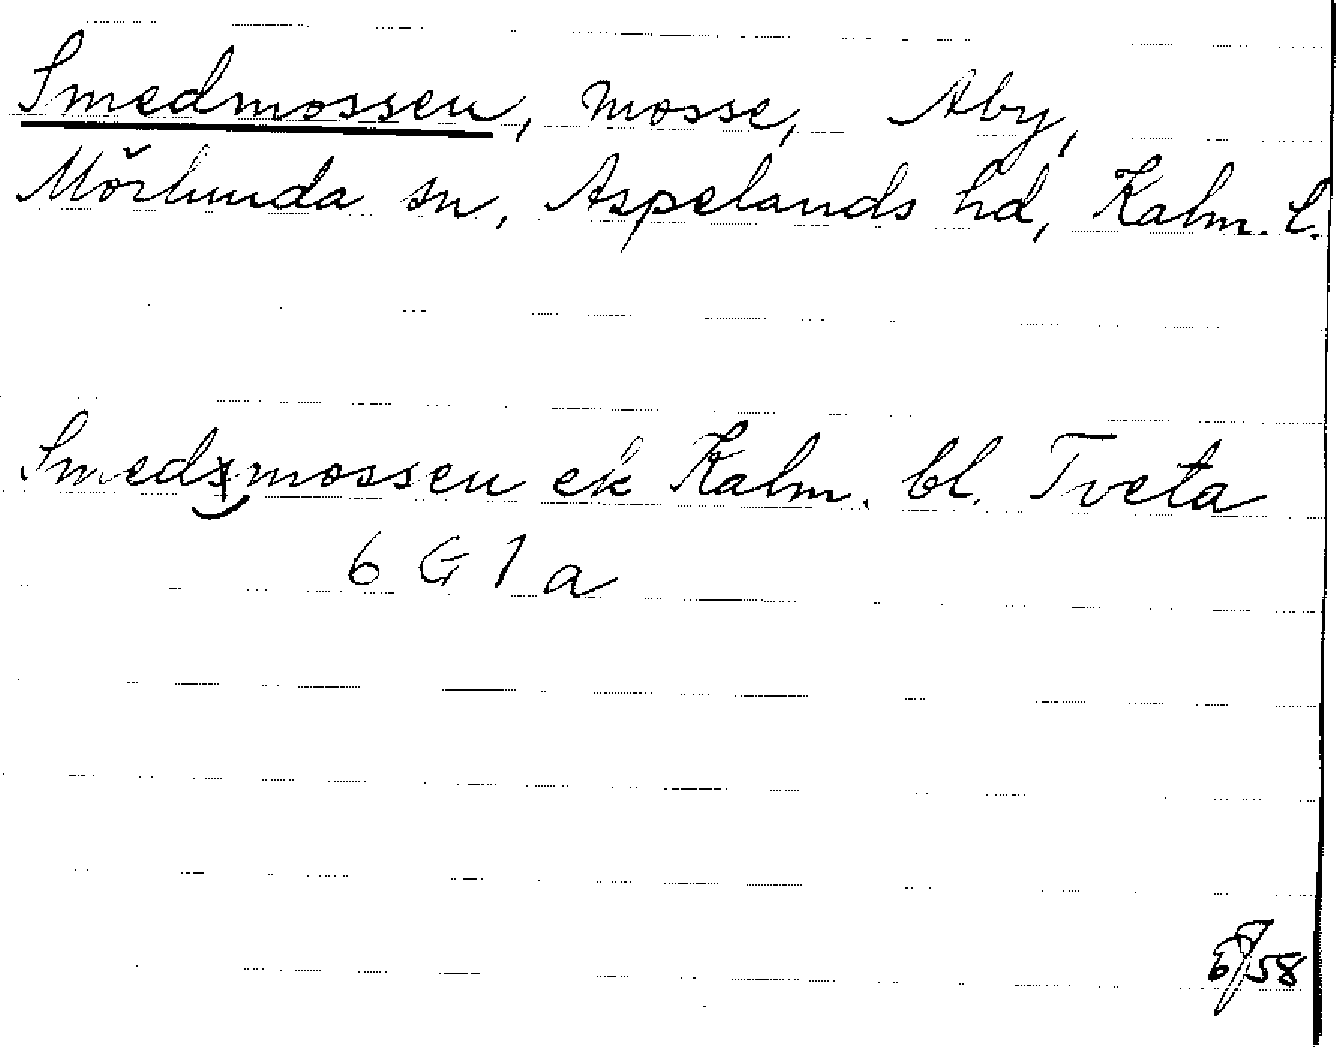 Smedmossen, mosse, Åby,
Mörlunda sn, Aspelands hd, Kalm. l.
Smedmossen ek Kalm. bl. Tveta
6 G 1 a